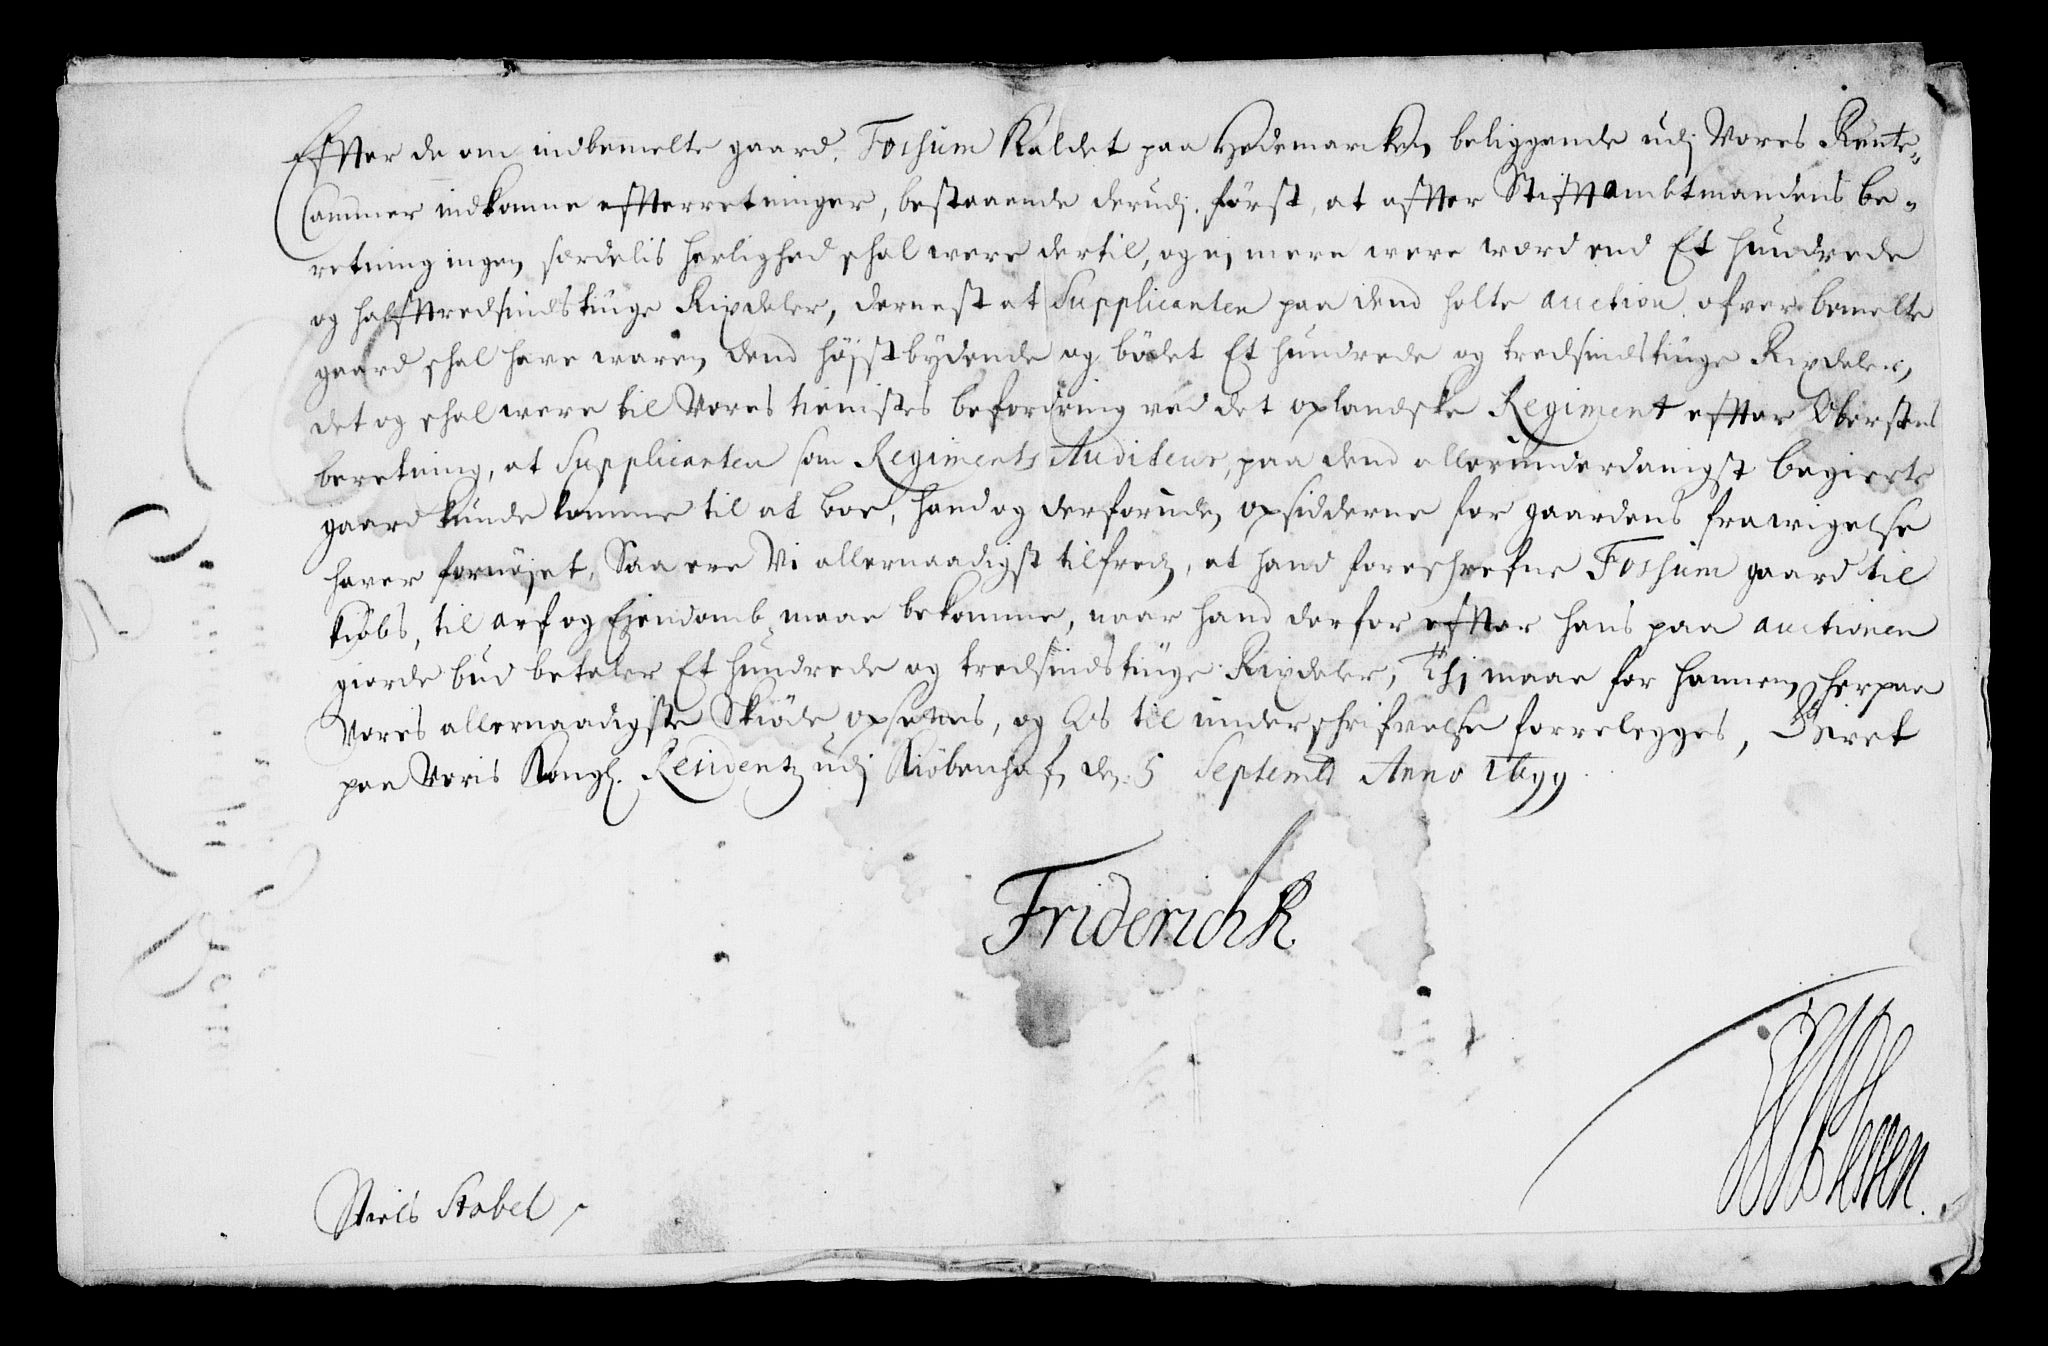 Effter de om indbemelte gaard, Foshum Kaldet paa Hedemarcken, beliggende udj Vores Rente-
Cammer indkomne effterretninger, bestaaende derudj, först, at effter Stifftambtmandens be-
retning ingen særdelis herlighed skal were dertil, og ej mere were wærd end Et hundrede
og halfftredsindstiuge Rixdaler, dernest at Supplicanten paa dend holte auction ofver bemelte
gaard skal have waren dend höjstbydende og bödet Et hundrede og tredsindstiuge Rixdaler,
det og skal were til Vores tienistes befordring ved det oplandske Regiment effter Oberstens
beretning, at Supplicanten som Regiments Auditeur, paa dend allerunderdanigst begierte
gaard kunde komme til at boe, hand og derforuden opsidderne for gaardens frawigelse
haver fornöjet, Saa ere Vi allernaadigst tilfreds, at hand foreskrefne Foshum gaard til
kiöbs, til arf og Ejendomb maae bekomme, naar hand derfor effter hans paa auctionen
giorde bud betaler Et hundrede og tredsindstiuge Rixdaler, Thj maae for hannem herpaa
Vores allernaadigste Skiöde opsettes, og Os til underskrifvelse forrelegges, Skrevet
paa Voris Kongl. Residentz udj Kiöbenhafn den 5 Septembr Anno 1699.
Friderich R.
Niels Stabel